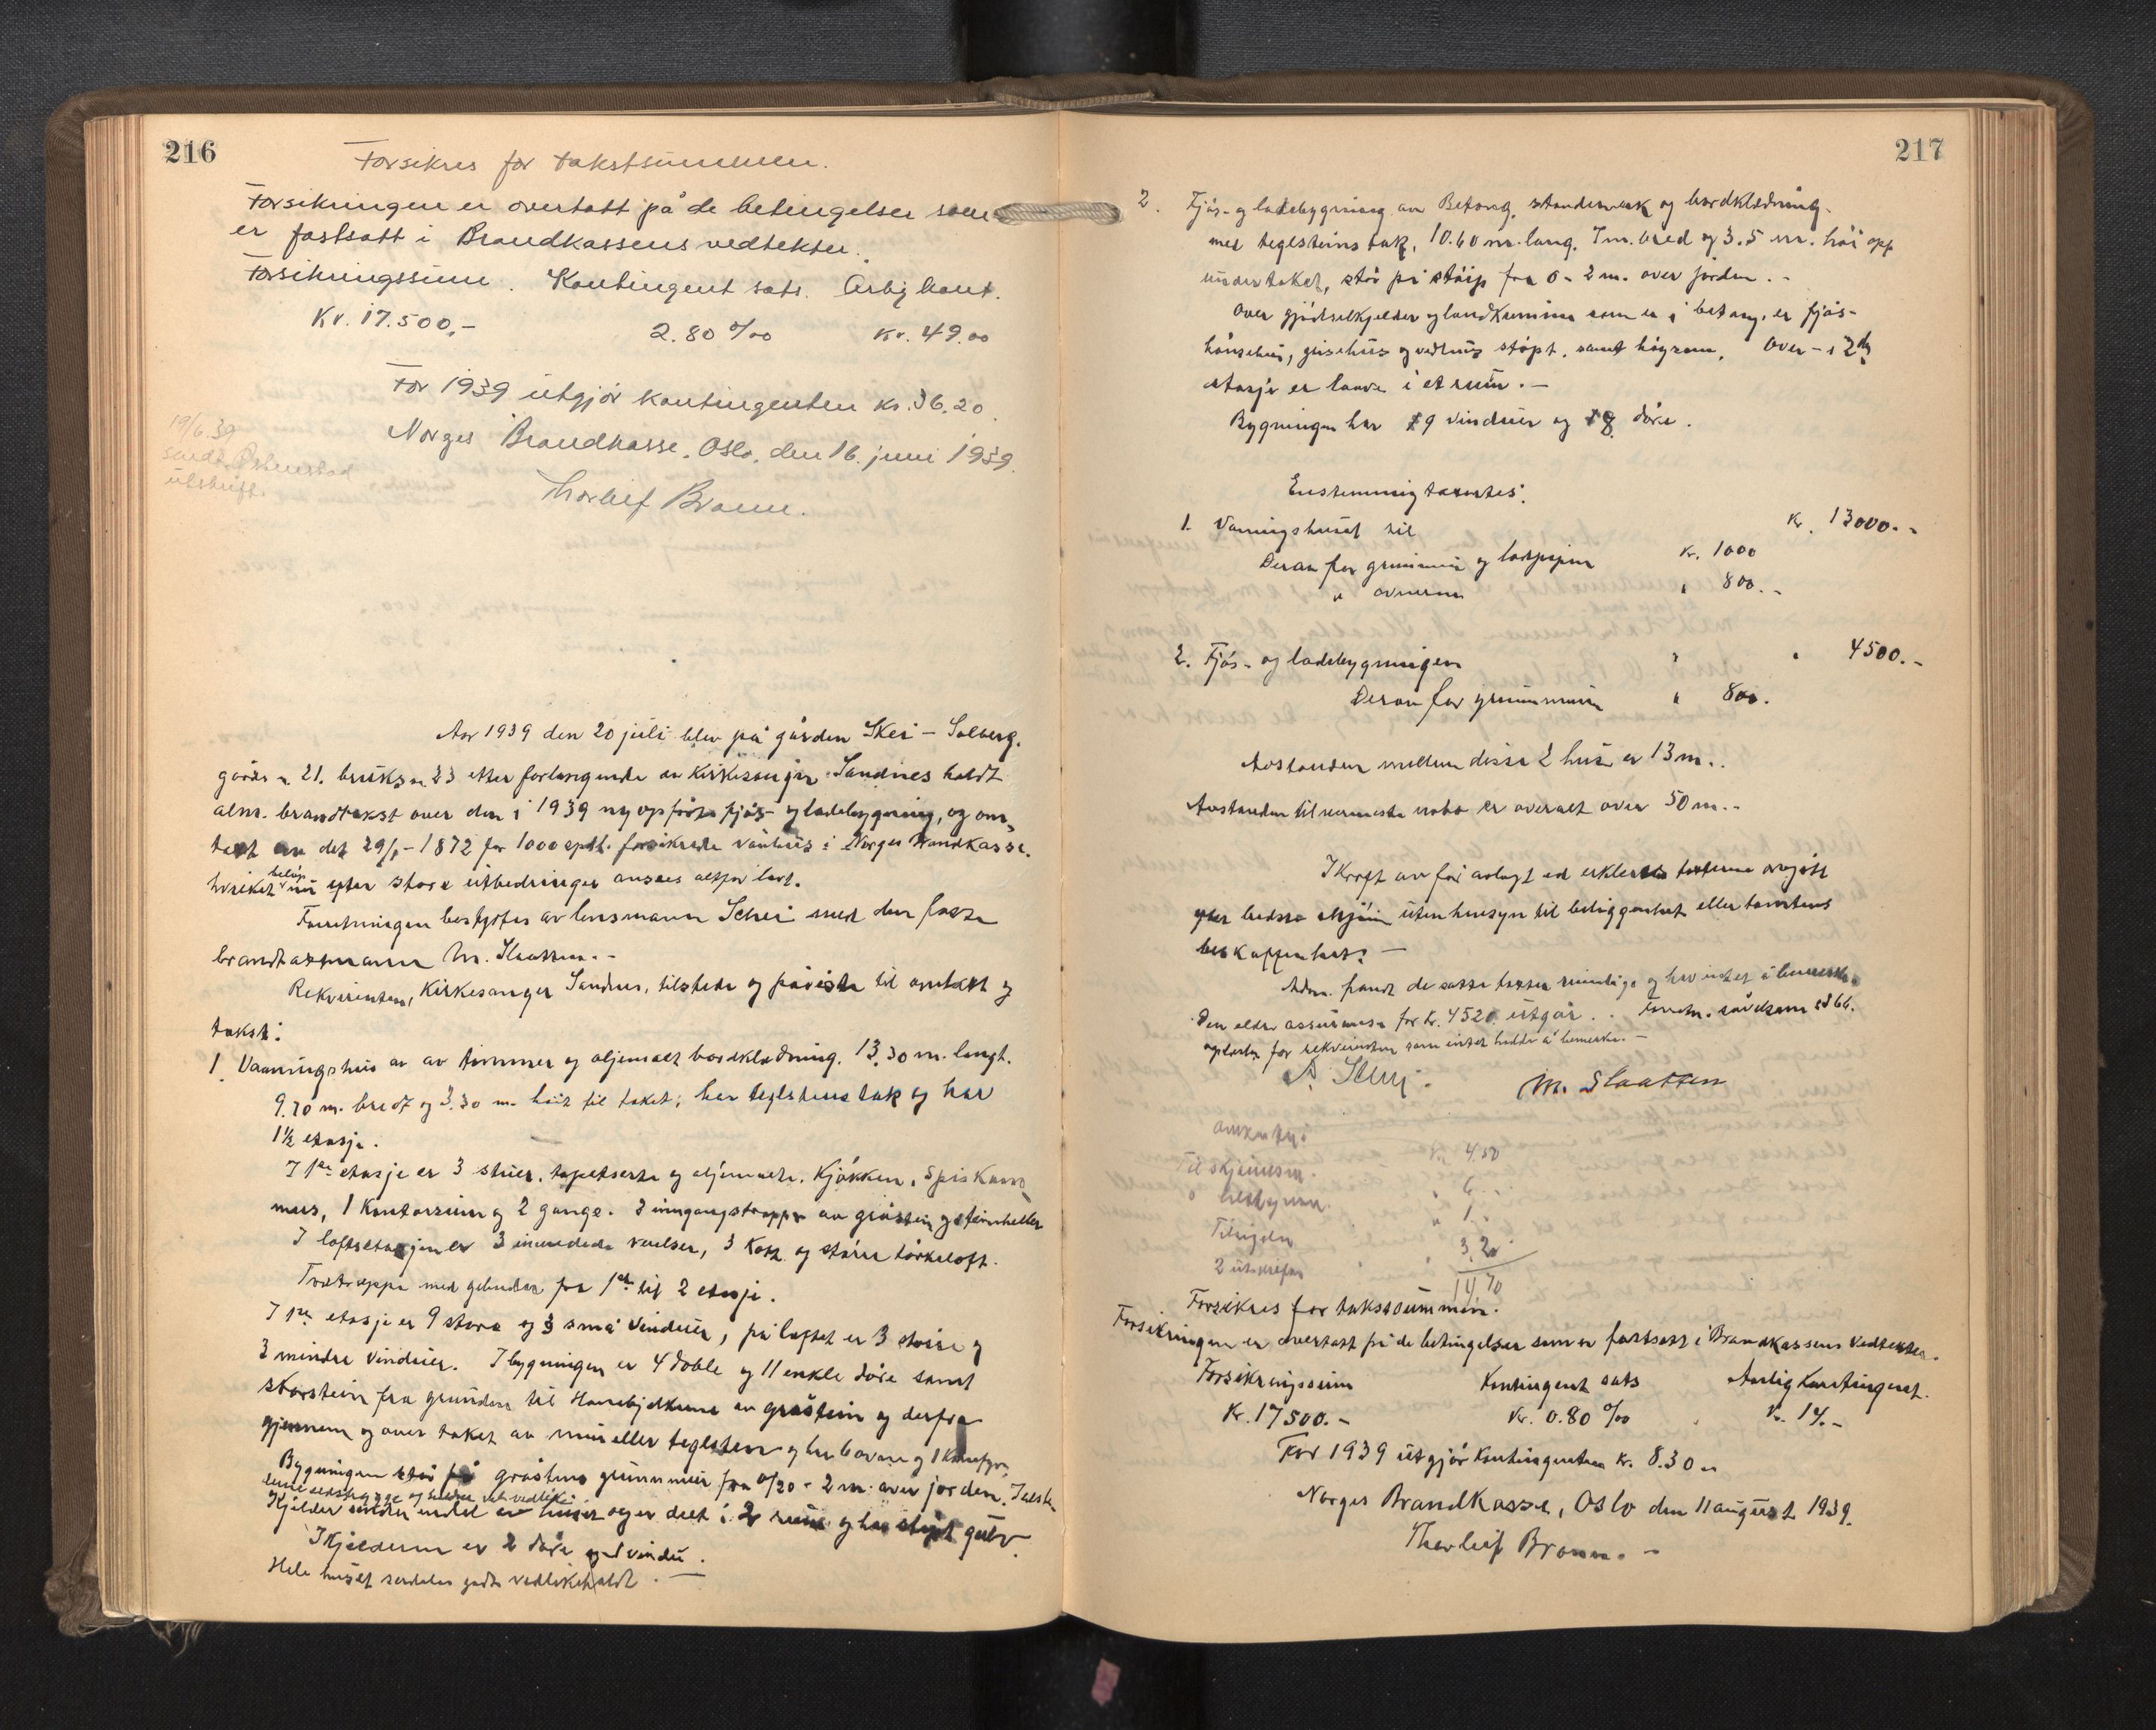 216
Forsikres for takstsummen.
Forsikringen er overtatt på de betingelser som
er fastsatt i Brandkassens vedtekter.
Forsikringssum. Kontingent sats. Årlig kont.
Kr. 17.500,- 2.80 ‰ Kr. 49.00
For 1939 utgjør kontingenten kr. 36.20.
Norges Brandkasse, Oslo, den 16. juni 1939.
Thorleif Braun.
19/6.39
sendt
utskrift.
Aar 1939 den 20 juli blev på gården Skei - Solberg,
gårds n 21. bruks n 23 etter forlangende av Kirkesanger Sandnes holdt
alm. brandtakst over den i 1939 ny opførte fjøs- og ladebygning, og om-
taxt av det 29/ - 1872 for 1000 spdl. forsikrede vånhus i Norges Brandkasse.
hvilket beløp nu efter store utbedringer ansees altfor lavt.
Forretningen bestyrtes av lensmann Schei med den faste
brandtaxmann M. Slaatten.-
Rekvirenten, Kirkesanger Sandnes, tilstede og påviste til omtaxt og
takst:
1. Vaaningshus av tømmer og oljemalt bordklædning. 13.30 m. langt.
9.70 m. bredt og 3.30 m. høit til taket; har teglstens tak og har
1½ etasje.
I 1ste etasje er 3 stuer, tapetserte og oljemalte. Kjøkken, Spiskam-
mers, 1 Kontorrum og 2 gange. 2 inngangstrapper av gråstein og steinheller
I loftsetasjen er 3 innredede værelser, 3 Kott og større tørkeloft.
Trætrappe med gelender fra 1ste til 2 etasje.
I 1ste etasje er 9 store og 3 små vinduer, på loftet er 3 større og
3 mindre vinduer. I bygningen er 4 doble og 11 enkle døre samt
skorstein fra grunden til Hanebjelkene av gråstein og derfra
gjennem og over taket av mur eller teglsten og har 6 ovne og 1 Komfyr.
Bygningen står på gråstens grunnmur fra 0/20 - 2 m. over jorden.
Kjelder under endel av huset og er delt i 2 rum og har støpt gulv.
I Kjelderen er 2 døre og 1 vindu.
Hele huset særdeles godt vedlikeholdt. -
217
2. Fjøs- og ladebygning av Betong, stenderverk og bordklædning
med teglsteins tak, 10.60 m. lang, 7 m. bred og 3.5 m. høi opp
under taket, står på støip fra 0 - 2 m. over jorden. -
Over gjødselkjelder og landkummer som er i betong, er fjøs-
hønsehus, grisehus og vedhus støpt, samt høyrom. Over - i 2den
etasje er laave i et rum. -
Bygningen har 9 vinduer og 8 døre.
Enstemmig taxertes:
1. Vaaningshuset til Kr. 13000.-
Derav for grunnmur og Kr. 1000
" ovnerne " 800.-
2. Fjøs- og ladebygningen " " 4500.-
Derav for grunnmuren " 800.
Avstanden mellem disse 2 hus er 13 m..
Avstanden til nermeste nabo er overalt over 50 m.-
I Kraft av før avlagt ed erklæres taxterne avgitt
efter bedste skjønn uten hensyn til beliggenhet eller tomtens
beskaffenhet. -
Adm. fandt de satte taxter rimelige og har intet å bemerke.
Den eldre assuranse for Kr. 4520. utgår.. Forretn.
oplæstes for rekvirenten som intet hadde å bemerke. -
A. Schei. M. Slaatten
Kr. 4.50
" 6.
" 1.
3.20
2 utskrifter
14.70
Forsikres for takstsummen.
Forsikringen er overtatt på de betingelser som er fastsatt i Brandkassens Vedtekter.
Forsikringssum Kontingent sats Aarlig Kontingent.
Kr. 17500.- Kr. 0.80 ‰ Kr. 14.-
For 1939 utgjør Kontingenten Kr. 8.30
Norges Brandkasse, Oslo den 11 august 1939.
Thorleif Braun. -